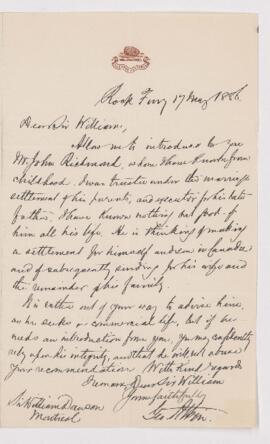 Rock Ferry 17 May 1886.
Dear Sir William,
Allow me to introduce to you
Mr. John Richmond, whom I have known from
childhood. I was trustee under the marriage
settlement of his parents, and executor for his late
father, I have known nothing but good of
him all his life. He is thinking of making
a settlement for himself and son in Canada
and of subsequently sending for his wife and
the remainder of his family.
It is rather out of your way to advise him,
as he seeks a commercial life, but if he
needs an introduction from you, you may confidently
rely upon his integrity, and that he will not abuse
your recommendation. With kind regards
I remain, Dear Sir William
Yours faithfully
Sir William Dawson
Montreal